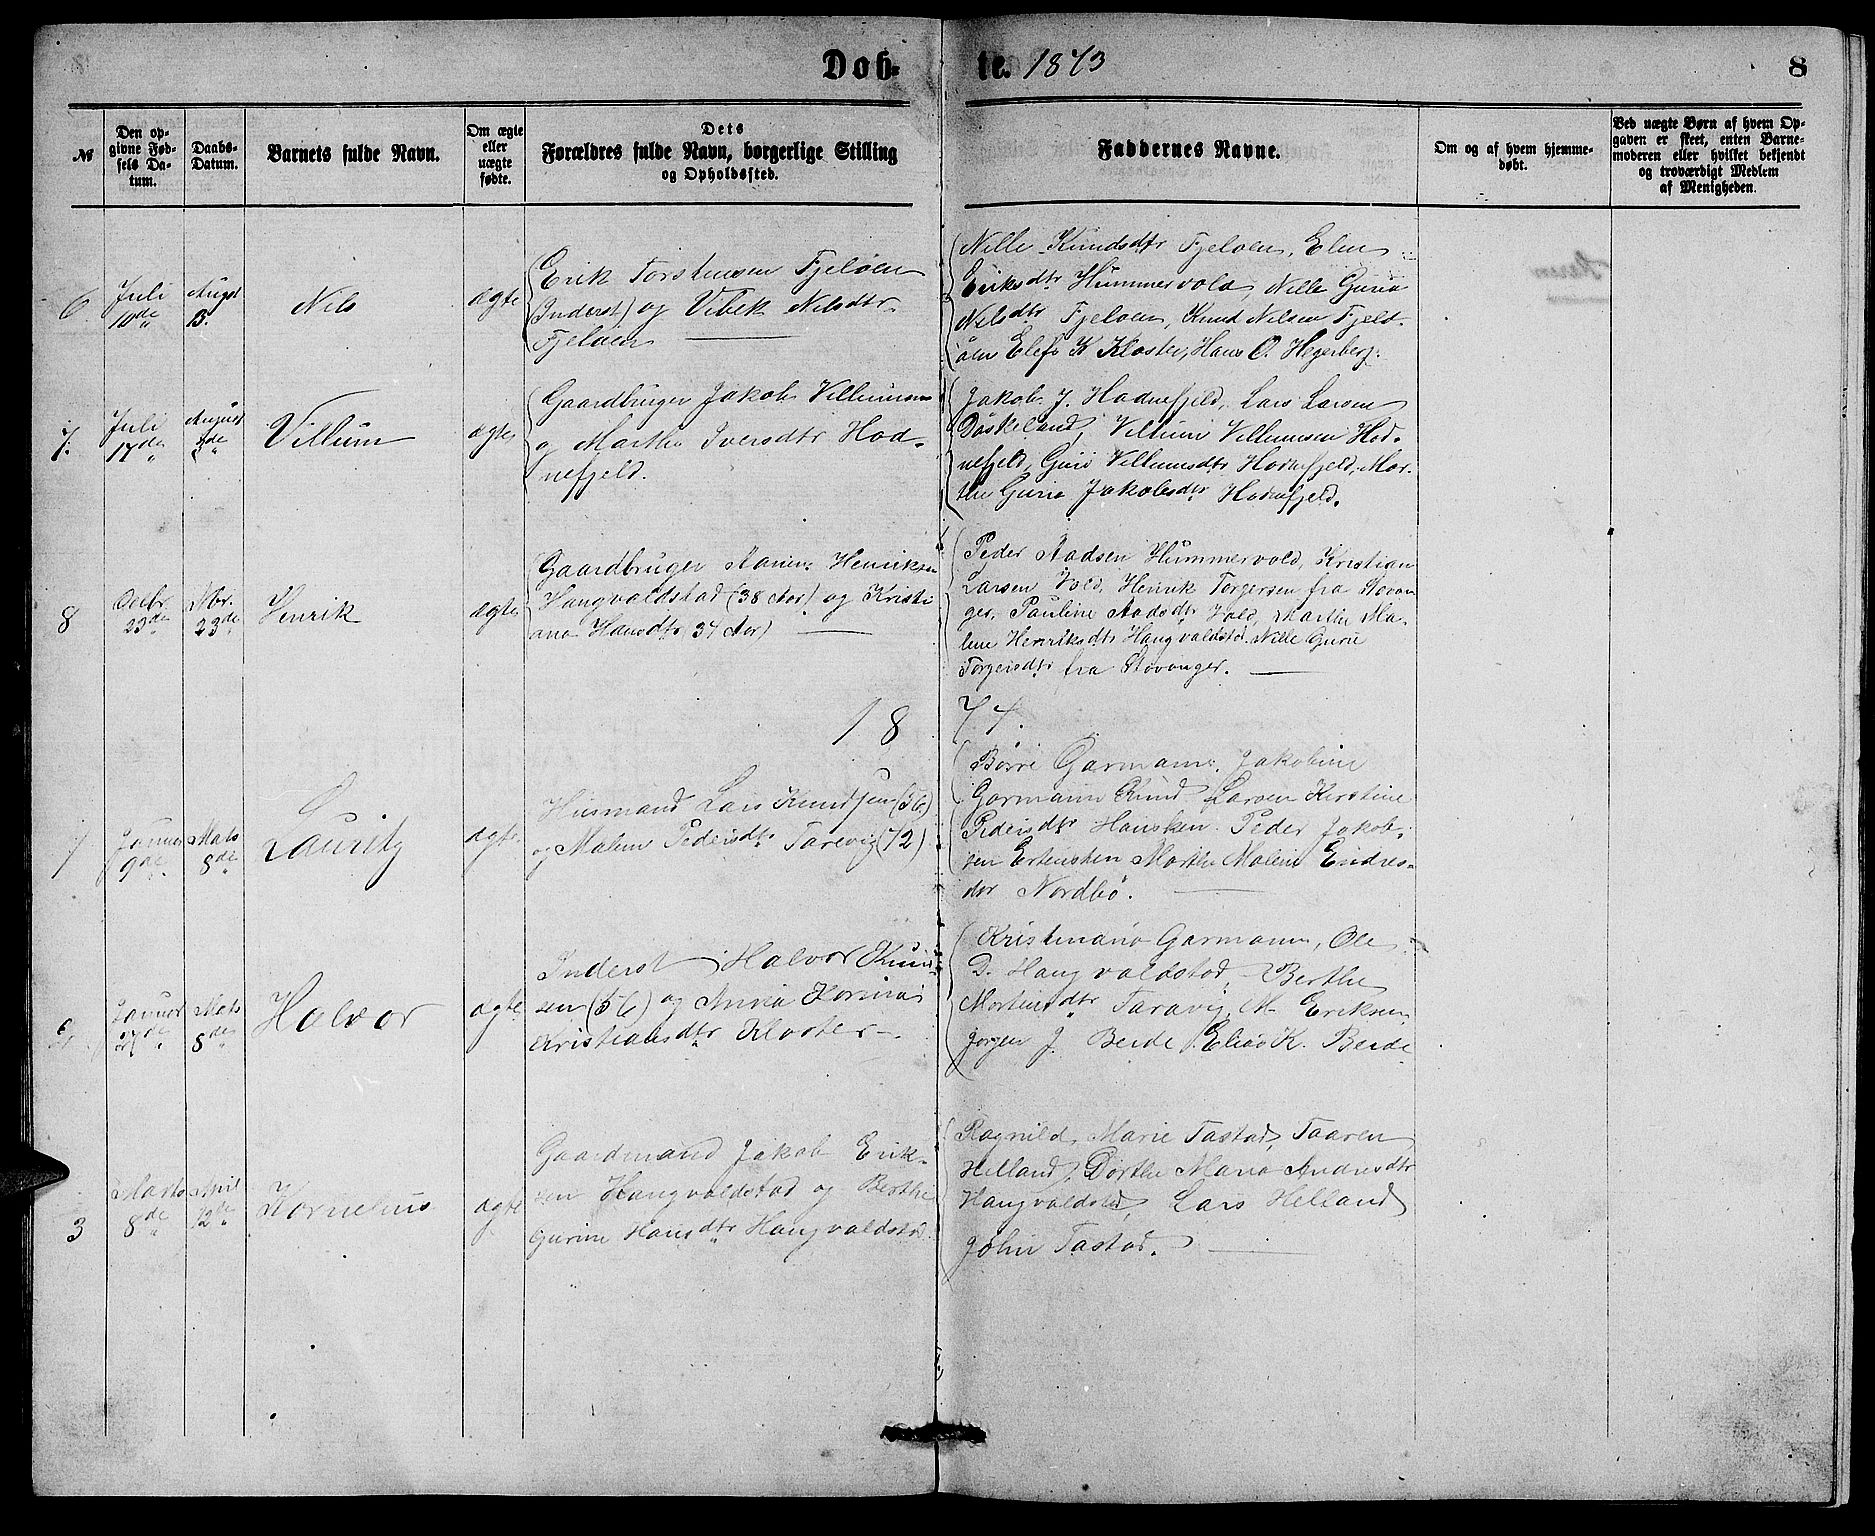 Døb-te. 1873
8
№
Den opgivne Fødsels Datum.
Daabs-Datum.
Barnets fulde Navn.
Om ægte eller uægte fødte.
Dets
Forældres fulde Navn, borgerlige Stilling
og Opholdssted.
Faddernes Navne.
Om og af hvem hjemmedøbt.
Ved uægte Børn af hvem Opgaven er skeet, enten Barnemoderen eller hvilket bekjendt og troværdigt Medlem af Menigheden.
6.
Juli
10de
August
Nils
ægte
Erik Torstensen Fjeløen
(Inderst) og Vibek Nilsdtr
Fjeløen
Nille Knudsdtr Fjeløen, Elen
Eriksdtr Hummervold, Nille Guria
Nilsdtr Fjeløen, Knud Nilsen Fjel-
øen K Kloster, Hans O. Hegerberg.
7.
Juli
17de
August
Villum
ægte
Gaardbruger Jakob Villumsen
og Marthe Iversdtr Hod-
nefjeld.
Jakob J. Hodnefjeld, Lars Larsen
Døskeland, Villum Villumsen Hod-
nefjeld, Guri Villumsdtr Hodnefjeld, Mar-
the Guria Jakobsdtr Hodnefjeld.
8
Octbr.
23de
Nbr.
23de
Henrik
ægte
Gaardbruger Henriksen
Haugvaldstad (38 Aar) og Kristi
ana Hansdtr 34 Aar)
Peder Aadsen Hummervold, Kristian
Larsen Vold, Henrik Torgersen fra Stavan-
ger, Pauline Aadsdtr Vold, Marthe Ma-
lene Henriksdtr Haugvaldstad, Nille Gurie
Torgersdtr fra Stavanger.
1874.
1
Januar
9de
Mats
8de
Lauritz
ægte
Husmand Lars Knudsen (36)
og Malene Pedersdtr Tarevig (72)
Børre Garmann, Jakobine
Garmann Knud Larsen Kerstine
Pedersdtr Hausken. Peder Jakob-
sen Marthe Malene Endres-
dtr Nordbø.
2.
Januar
27de
Mats
8de
Halvor
ægte
Inderst Halvor Knud
sen (36) og Anna Korina
Kristiansdtr Kloster
Garmann, Ole
D. Haugvaldstad, Berthe
Mortensdtr Taravig, M. Eriksen,
Jørgen J. Berde, Elias K. Berde
3
Marts
8de
April
12te
Kornelius
ægte
Gaardmand Jakob Erik-
sen Haugvaldstad og Berthe
Gurine Hansdtr Haugvaldstad.
Ragnild Marie Tastad, Taaren
Helland, Dorthe Maria Andresdtr
Haugvaldstad, Lars Helland
John Tastad.